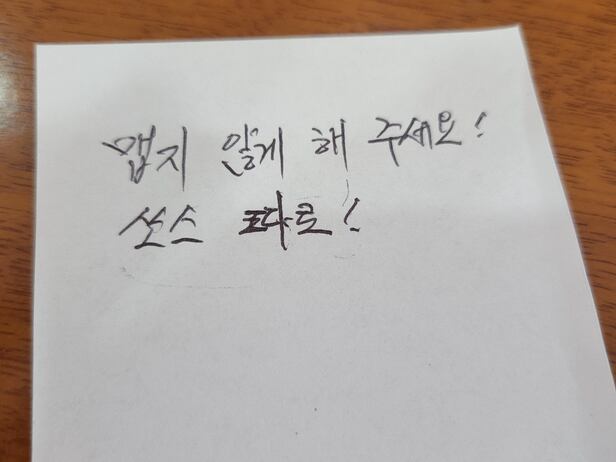 맵지 않게 해 주세요!
쏘스 따로!